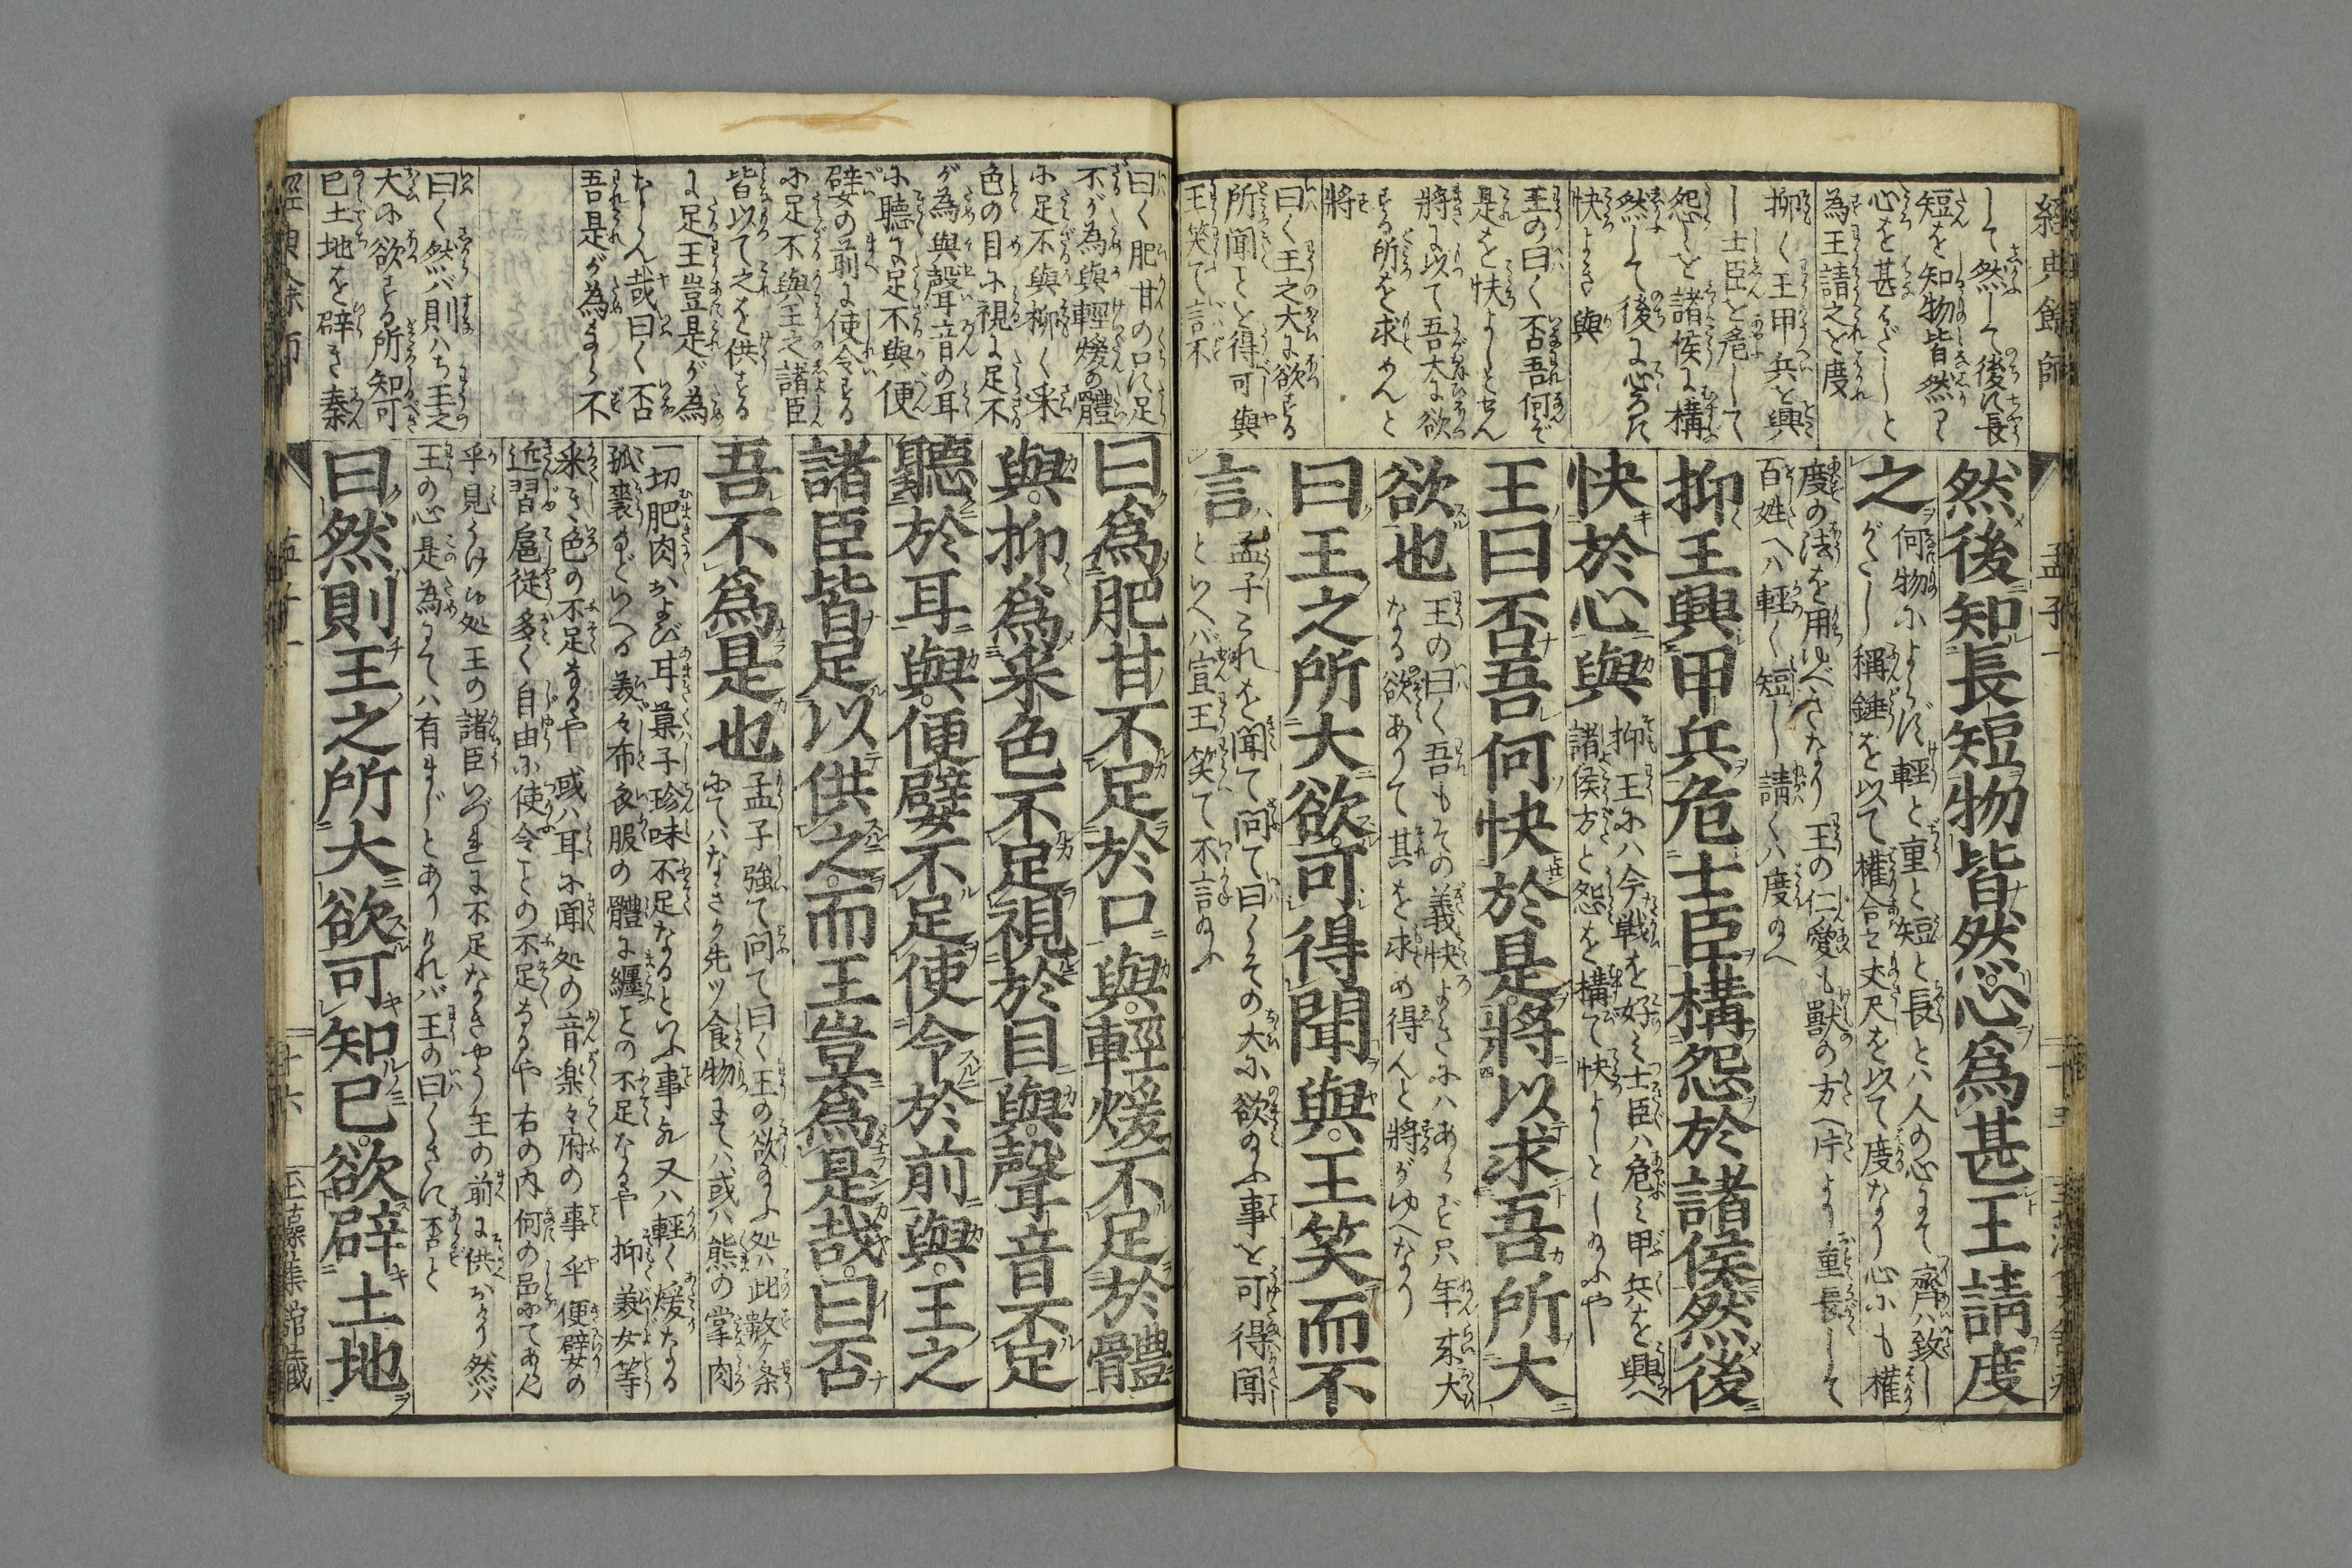 經典餘師
孟子一
して然して後に長
短を知物皆然り
心を甚だしと
為王請之を度
抑く王甲兵を興
し士臣を危して
怨を諸侯に構
然して後に心に
快よき與
王の曰く否吾何ぞ
是を快よしとせん
將に以て吾大に欲
する所を求めんと
將
曰く王之大に欲する
所聞ことを得可與
王笑て言不
然後知長短物皆然心爲甚王請度
之
何物によらず輕と重と短と長とハ人の心にて齊ハ致し
がたし稱錘を以て權合セ丈尺を以て度なり心にも權
度の法を用ゆべきなり王の仁愛も獸の方へ片より重長しそ
百姓へハ輕く短し請くハ度めへ
抑王興甲兵危士臣構怨於諸侯然後
快於心與
抑王にハ今戰を好ミ士臣ハ危ミ甲兵を興へ
諸侯方と怨を構て快よしとし給ふや
王曰否吾何快於是將以求吾所大
欲也
王の曰く吾もその義快よきにハあらず只年來大
なる欲ありて其を求め得んと將がゆへなり
曰王之所大欲可得聞與王笑而不
言
孟子これを聞て問て曰くその大に欲給ふ事を可得聞
といへバ宣王笑て不言給ふ
曰く肥甘の口に足
不が為與輕煖の體
に足不與抑く采
色の目に視に足不
が為與聲音の耳
に聽に足不與便
嬖の前に使令する
に足不與王之諸臣
皆以て之を供する
に足王豈是が為
ならん哉曰く否
吾是が為ならず不
曰く然バ則ハち王之
大に欲する所知可
已土地を辟き秦
曰爲肥甘不足於口與輕煖不足於體
與抑爲采色不足視於目與聲音不足
聽於耳與便嬖不足使令於前與王之
諸臣皆足以供之而王豈爲是哉曰否
吾不爲是也
孟子強て問て曰く王の欲給ふ処ハ此數ケ条
にてハなきか先ツ食物にてハ或ハ熊の掌肉
一切肥肉および耳菓子珍味不足なるといふ事か又ハ輕く煖なる
狐裘などいへる美々布衣服の體に纏ことの不足なるや抑美女等
采き色の不足なるや或ハ耳に聞処の音楽々府の事や便嬖の
近習扈従多く自由に使令ことの不足なるや右の内何の品にてあらん
乎見うけ候処王の諸臣いづれに不足なきやう王の前に供おけり然バ
王の心是為にてハ有まじとありけれバ王の曰くさに否と
曰然則王之所大欲可知已欲辟土地
孟子一
十六